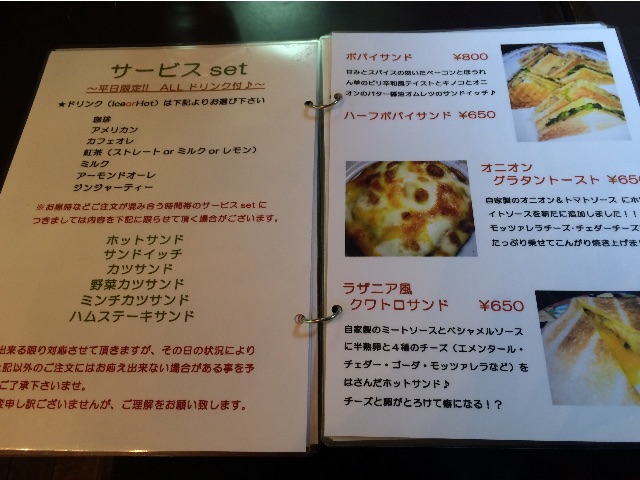 サービス set
～平日限定!! ALL ドリンク付♪～
★ドリンク（IceorHot）は下記よりお選び下さい
珈琲
アメリカン
カフェオレ
紅茶（ストレート or ミルク or レモン）
ミルク
アーモンドオーレ
ジンジャーティー
※お昼時などご注文が混み合う時間帯のサービス set に
つきましては内容を下記に限らせて頂く場合がございます。
ホットサンド
サンドイッチ
カツサンド
野菜カツサンド
ミンチカツサンド
ハムステーキサンド
出来る限り対応させて頂きますが、その日の状況により
記以外のご注文にはお応え出来ない場合がある事を予
ご了承下さいませ。
変申し訳ございませんが、ご理解をお願い致します。
ポパイサンド ￥800
甘みとスパイスの効いたベーコンとほうれ
ん草のピリ辛和風テイストとキノコとオニ
オンのバター醤油オムレツのサンドイッチ♪
ハーフポパイサンド ￥650
オニオン
グラタントースト ￥650
自家製のオニオン＆トマトソース にホ
イトソースを新たに追加しました！！
モッツァレラチーズ・チェダーチーズ
たっぷり乗せてこんがり焼き上げま
ラザニア風
クワトロサンド ￥650
自家製のミートソースとベシャメルソース
に半熟卵と４種のチーズ（エメンタール・
チェダー・ゴーダ・モッツァレラなど）を
はさんだホットサンド♪
チーズと卵がとろけて癖になる！？